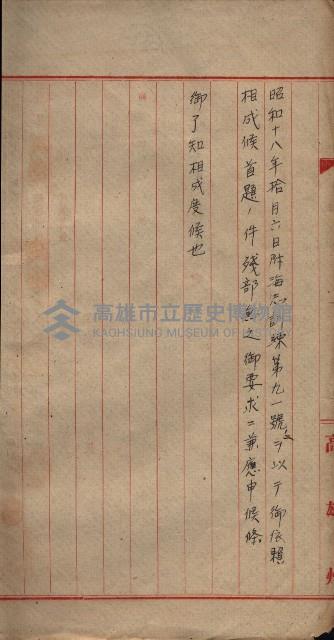 昭和十八年拾月六日附海志訓練第九一號ノ二ヲ以テ御依賴
相成候首題ノ件殘部無之御要求ニ兼應申候條
御了知相成度候也
高雄州
高雄市立歷史博物館
KAOHSIUNG MUSEUM OF HISTORY